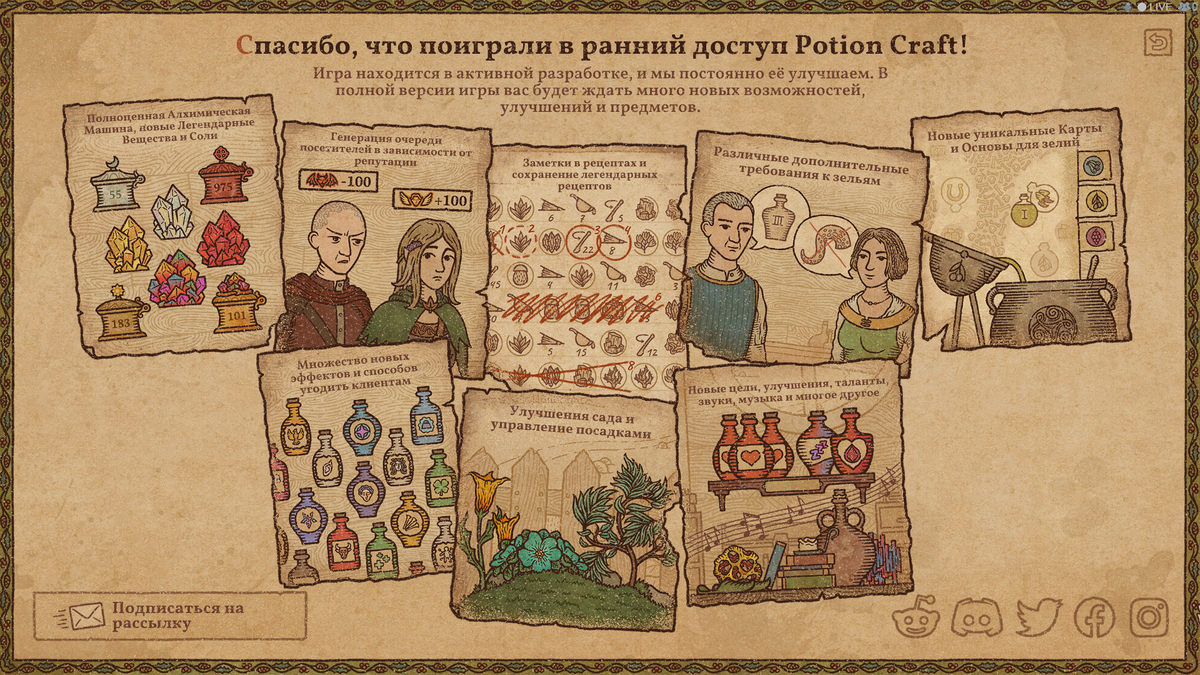 LIVE
Спасибо, что поиграли в ранний доступ Potion Craft!
Игра находится в активной разработке, и мы постоянно её улучшаем. В
полной версии игры вас будет ждать много новых возможностей,
улучшений и предметов.
Полноценная Алхимическая
Машина, новые Легендарные
Вещества и Соли
55
975
183
101
Генерация очереди
посетителей в зависимости от
репутации
-100
+100
Заметки в рецептах и
сохранение легендарных
рецептов
6
7
5
2
3
4
22
8
4
11
5
15
12
8
Различные дополнительные
требования к зельям
III
Новые уникальные Карты
и Основы для зелий
I
Множество новых
эффектов и способов
угодить клиентам
Улучшения сада и
управление посадками
Новые цели, улучшения, таланты,
звуки, музыка и многое другое
Подписаться на
рассылку